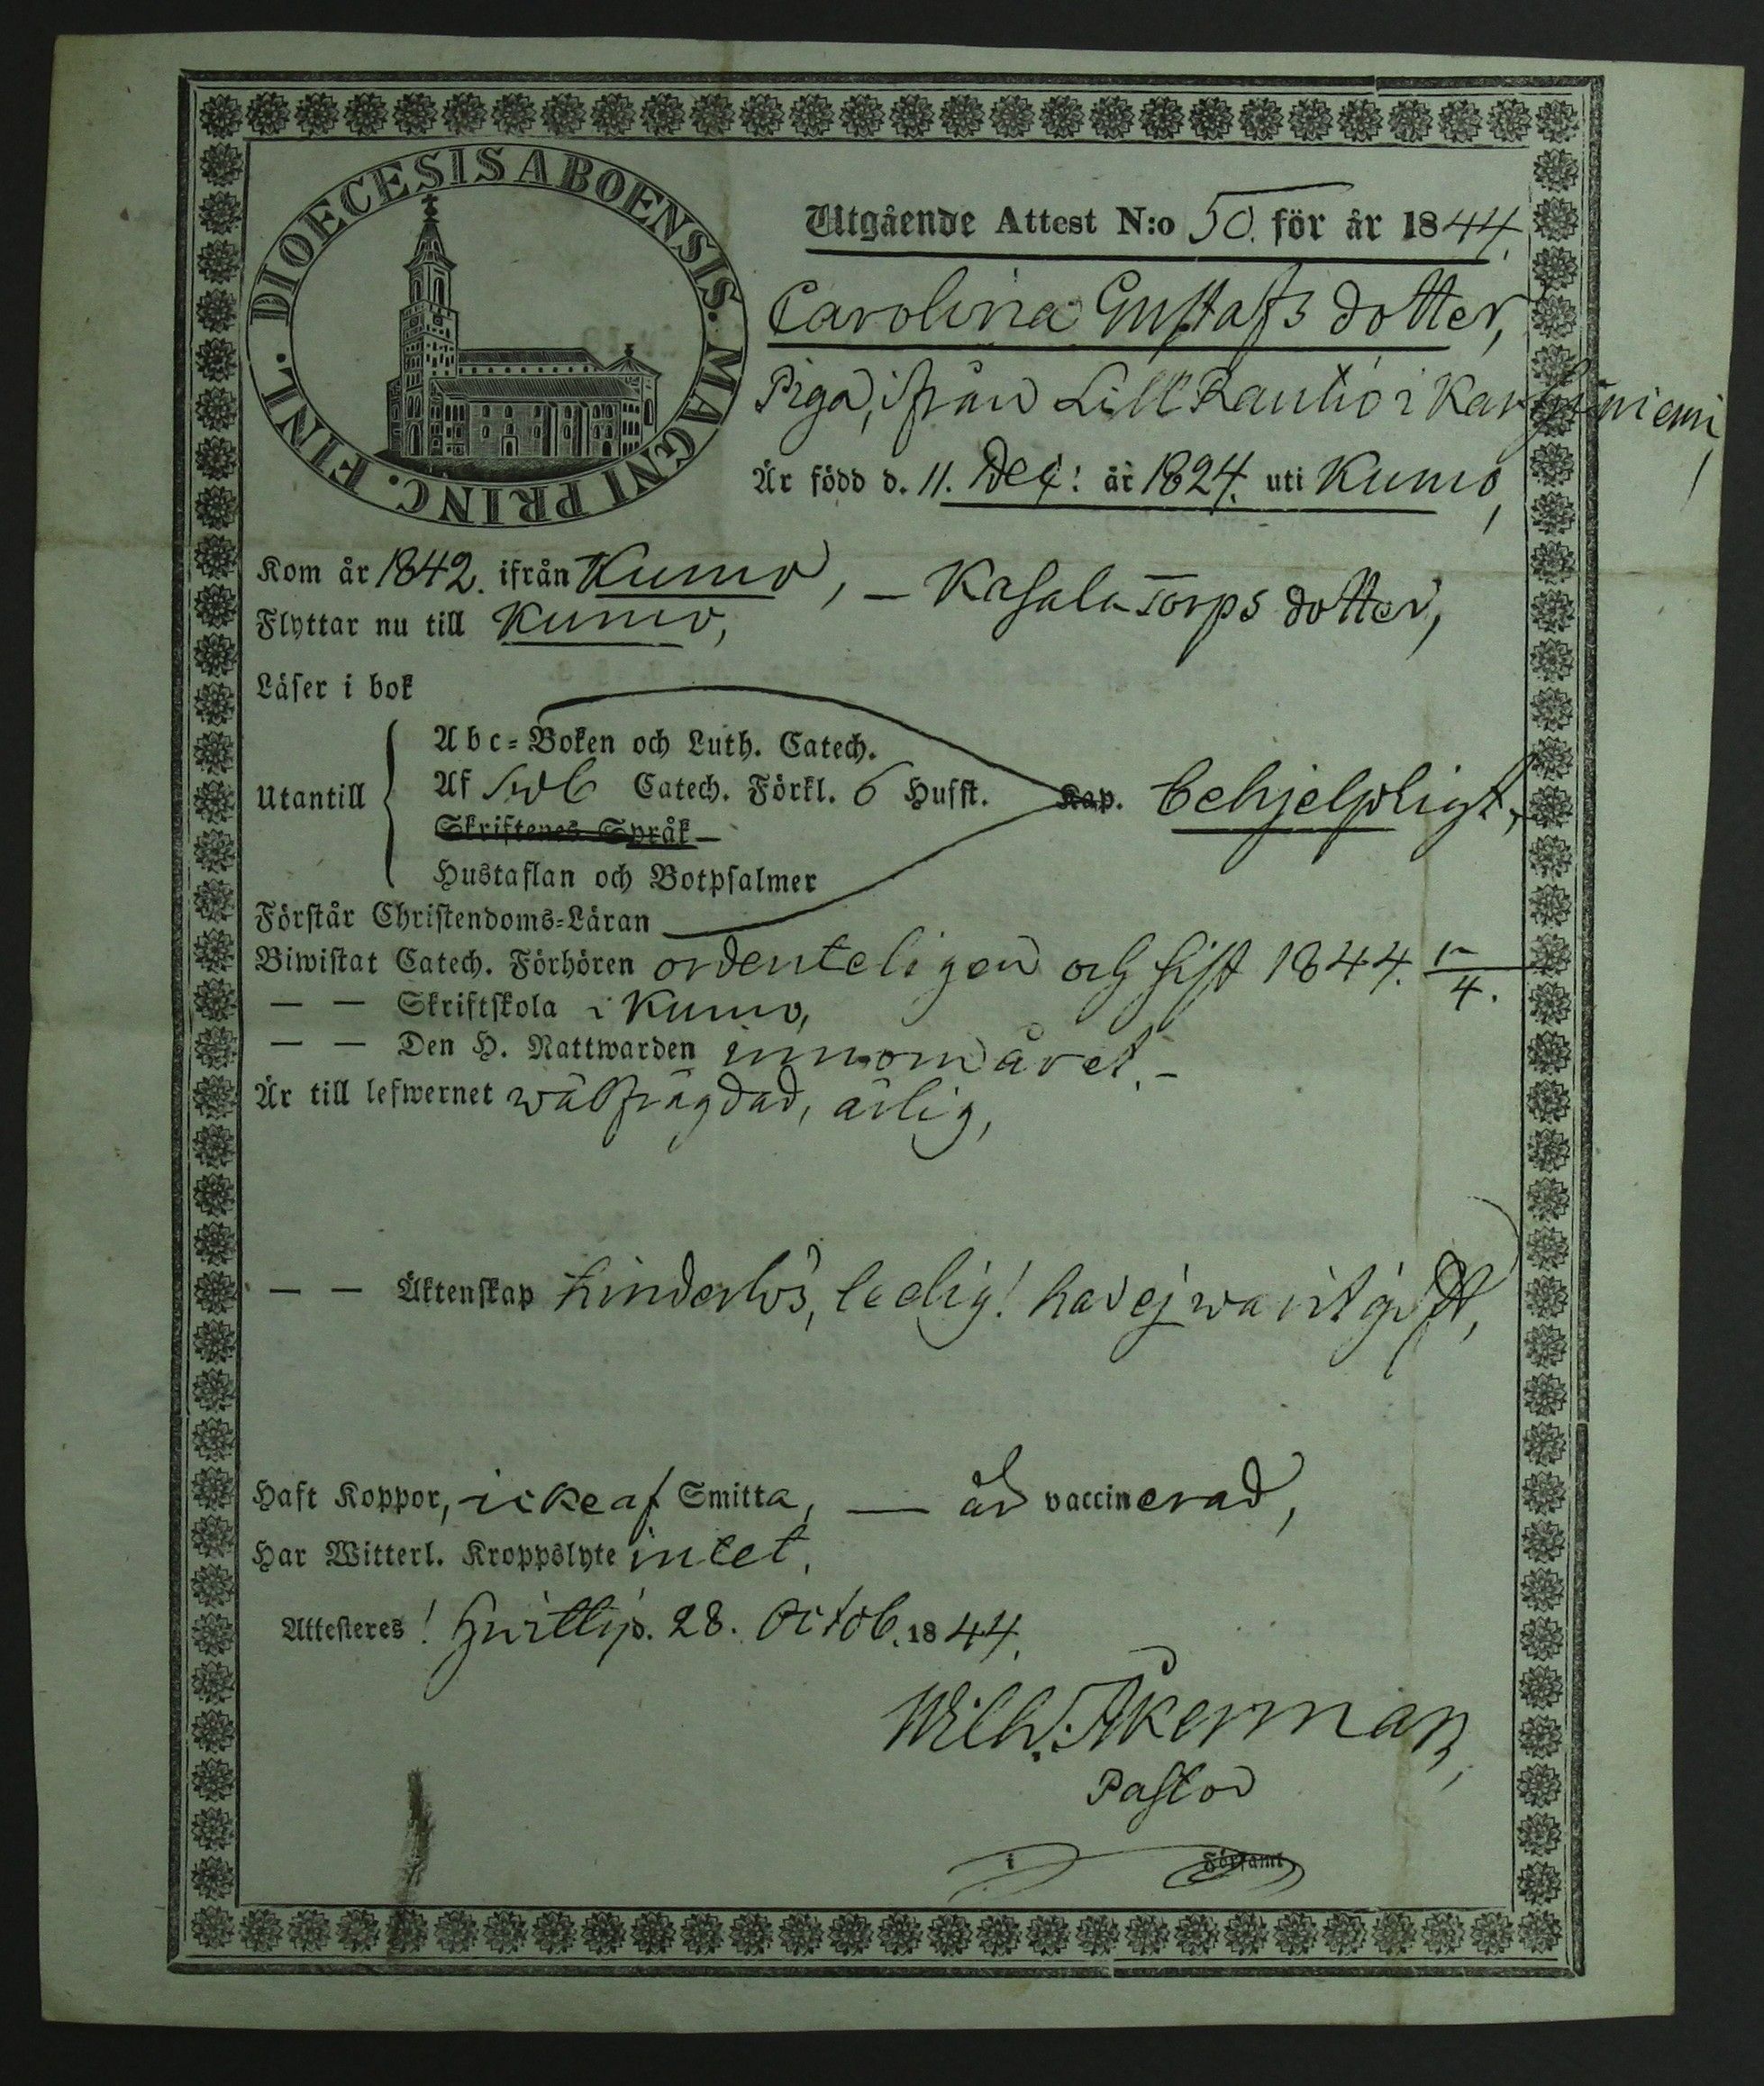 DIOECESIS ABOENSIS. MAGNI PRINC. FINL.
Utgående Attest N:o 50. för år 1844.
Carolina Gustafs dotter,
Piga, ifrån Lill Rautio i
Är född d. 11. Dec: år 1824. uti Kumo,
Kom år 1842. ifrån Kumo, – Kasala Torps dotter,
Flyttar nu till Kumo,
Läser i bok
Abc-Boken och Luth. Catech.
Utantill Af Sveb Catech. Förkl. 6 Hufst. Kap. behjelpligt,
Skriftenes Språk
Hustaflan och Botpsalmer
Förstår Christendoms-Läran
Biwistat Catech. Förhören ordenteligen och sist 1844.
— — Skriftskola i Kumo,
— — Den H. Nattwarden innom året. –
Är till lefwernet wälfrägdad, ärlig,
— — Äktenskap hinderlös, ledig! har ej warit gift,
Haft Koppor, icke af Smitta, — är vaccinerad,
Har Witterl. Kroppslyte intet.
Attesteres! Huittis. 28. Octob. 1844.
Wilh. Åkerman,
Pastor
i Församl.